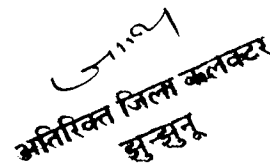 अतिरिक्त जिला कलक्टर
झुन्झुनू